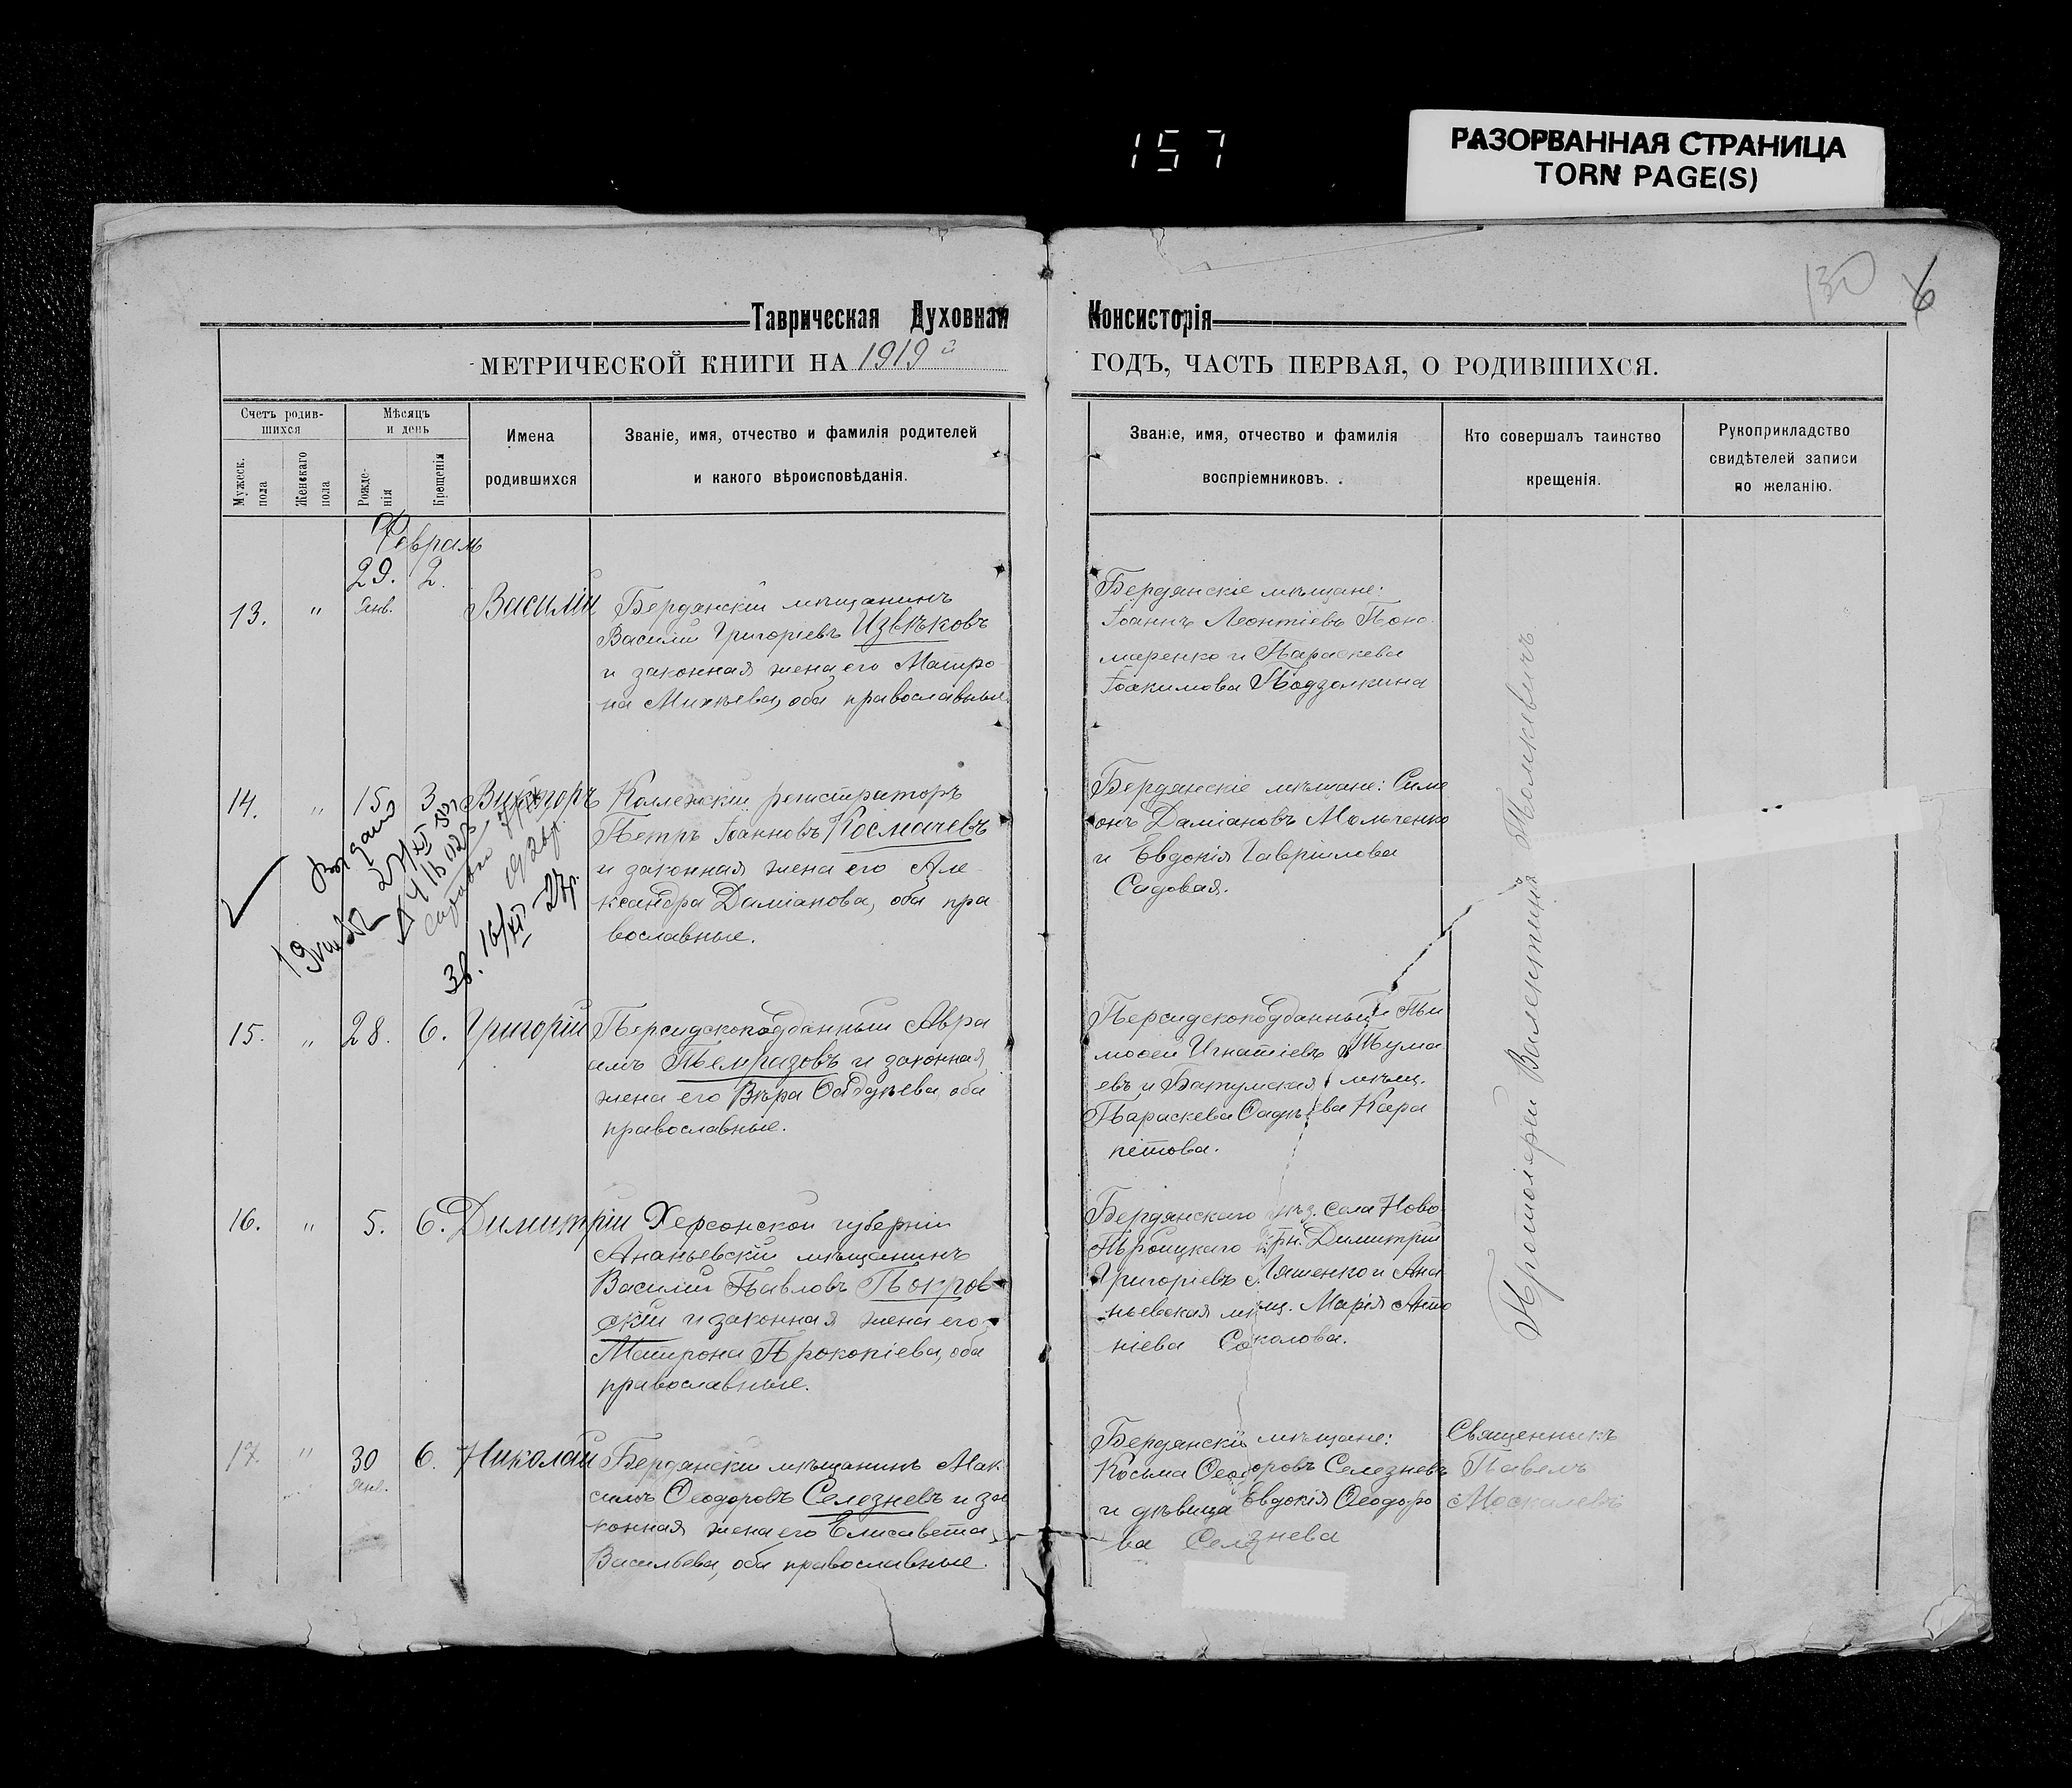 157
РАЗОРВАННАЯ СТРАНИЦА
TORN PAGE(S)
130 6
Таврическая Духовная Консисторія
МЕТРИЧЕСКОЙ КНИГИ НА 1919 й ГОДЪ, ЧАСТЬ ПЕРВАЯ, О РОДИВШИХСЯ.
Счетъ родив-
шихся
Мужеск.
пола
Женскаго
пола
Мѣсяцъ
и день
Рожде-
нія
Крещенія
Имена
родившихся
Званіе, имя, отчество и фамилія родителей
и какого вѣроисповѣданія.
Званіе, имя, отчество и фамилія
воспріемниковъ.
Кто совершалъ таинство
крещенія.
Рукоприкладство
свидѣтелей записи
по желанію.
Февраль
13. " 29. Янв. 2. Василій
Бердянскій мѣщанинъ
Василій Григоріевъ Извѣковъ
и законная жена его Матро
на Михѣева, оба православные.
Бердянскіе мѣщане:
Іоаннъ Леонтіевъ Поно
маренко и Параскева
Іоакимова Подзолкина
14. " 15 3 Викторъ
Коллежскій регистраторъ
Петръ Іоанновъ Космачевъ
и законная жена его Але
ксандра Даміанова, оба пра
вославные.
Бердянскіе мѣщане: Симе
онъ Даміановъ Мольченко
и Евдокія Гавріилова
Садовая.
15. " 28. 6. Григорій
Персидскоподданный Авра
амъ Темразовъ и законная
жена его Вѣра
оба
православные.
Персидскоподданный Ти
моѳей Игнатіевъ Тума
евъ и Батумская мѣщ.
Параскева Кара
петова.
16. " 5. 6. Димитрій
Херсонской губерніи
Ананьевскій мѣщанинъ
Василій Павловъ Покров
скій и законная жена его
Матрона Прокопіева, оба
православные.
Бердянскаго уѣз. села Ново
Троицкаго крн. Димитрій
Григоріевъ Ляшенко и Ана
ньевская мѣщ. Марія Анто
ніева Соколова.
Протоіерей Валентинъ
17. " 30 Янв. 6. Николай
Бердянскій мѣщанинъ Мак
симъ Ѳеодоровъ Селезневъ и за
конная жена его Елисавета
Васильева, оба православные.
Бердянскіе мѣщане:
Косьма Ѳеодоровъ Селезневъ
и дѣвица Евдокія Ѳеодоро
ва Селезнева
Священникъ
Павелъ